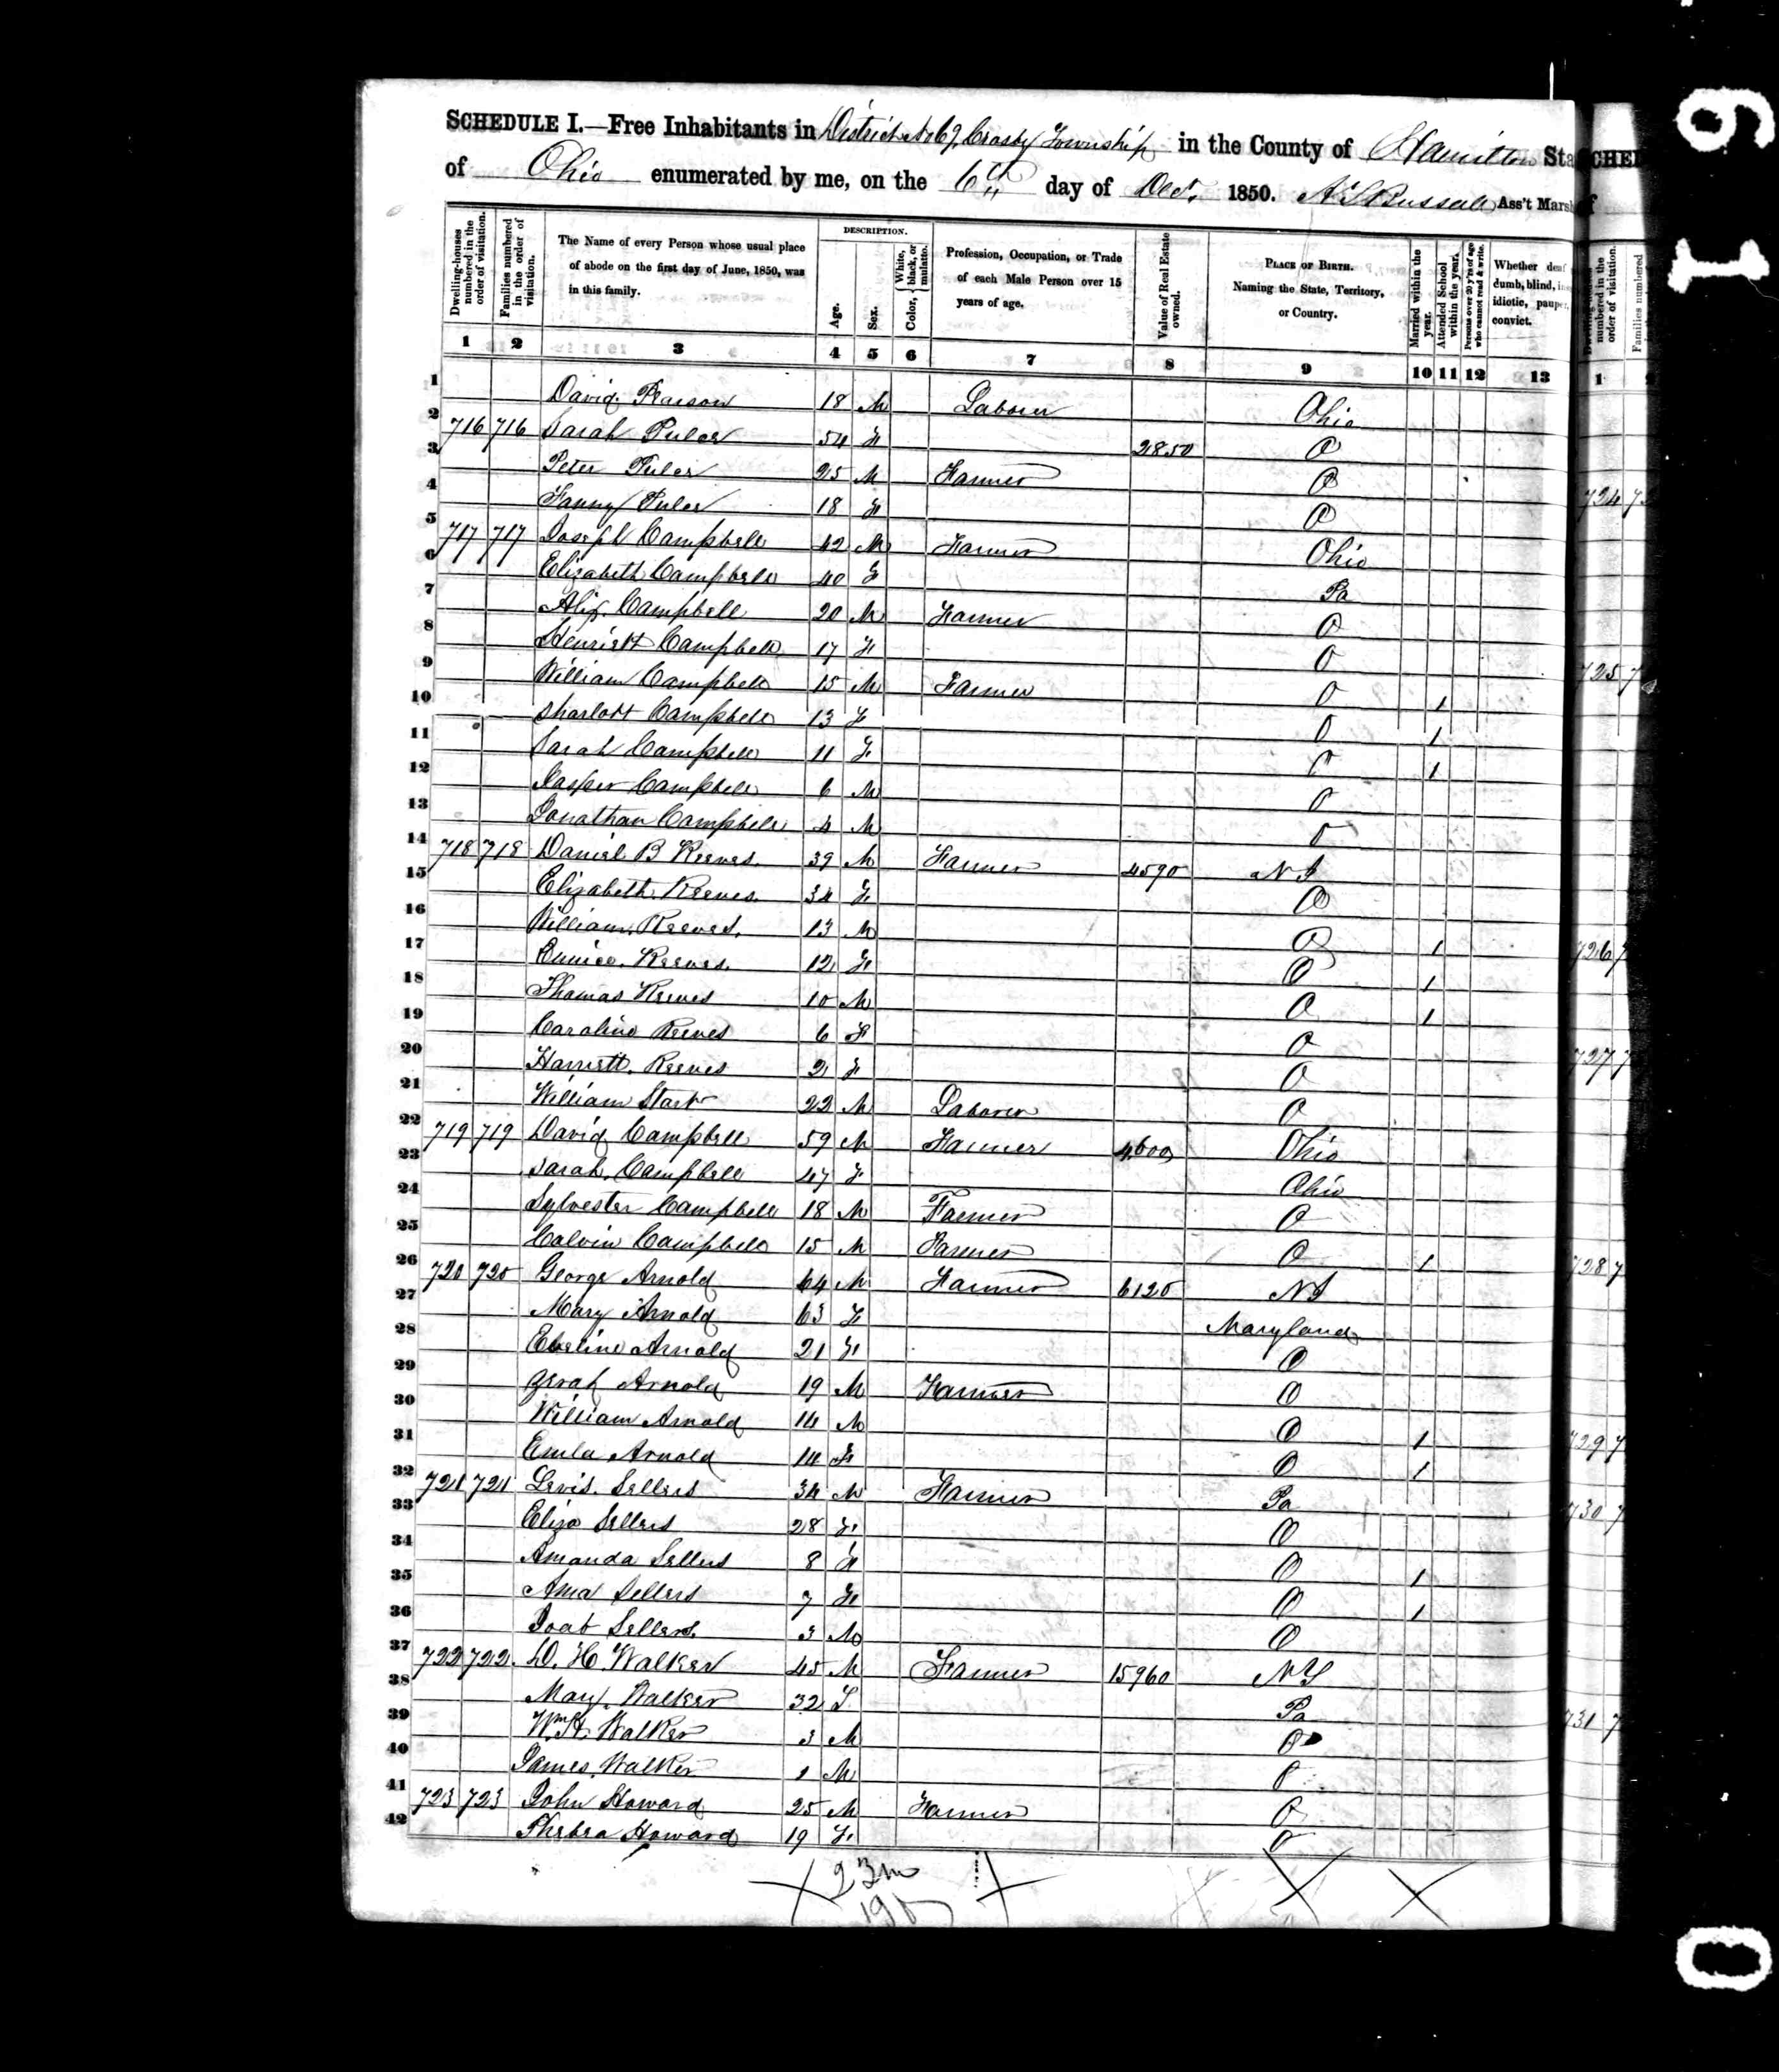 SCHEDULE I.—Free Inhabitants in District No 69, Crosby Township in the County of Hamilton Sta
of Ohio enumerated by me, on the 6th day of Oct. 1850. A S Russell Ass't Marsh
Dwelling-houses numbered in the order of visitation.
Families numbered in the order of visitation.
The Name of every Person whose usual place of abode on the first day of June, 1850, was in this family.
DESCRIPTION.
Age.
Sex.
Color, White, black, or mulatto.
Profession, Occupation, or Trade of each Male Person over 15 years of age.
Value of Real Estate owned.
PLACE OF BIRTH. Naming the State, Territory, or Country.
Married within the year.
Attended School within the year.
Persons over 20 y'rs of age who cannot read & write.
Whether deaf dumb, blind, idiotic, pauper, convict.
1 2 3 4 5 6 7 8 9 10 11 12 13
1 David Pearson 18 M Laborer Ohio
2 716 716 Sarah 54 F 2850 O
3 Peter 25 M Farmer O
4 Fanny 18 F O
5 717 717 Joseph Campbell 42 M Farmer Ohio
6 Elizabeth Campbell 40 F Pa
7 Campbell 20 M Farmer O
8 Henriett Campbell 17 F O
9 William Campbell 15 M Farmer O 1
10 Sharlott Campbell 13 F O 1
11 Sarah Campbell 11 F O 1
12 Jasper Campbell 6 M O
13 Jonathan Campbell 4 M O
14 718 718 Daniel B Reeves 39 M Farmer 4590 N J
15 Elizabeth Reeves 34 F O
16 William Reeves 13 M O 1
17 Eunice Reeves 12 F O 1
18 Thomas Reeves 10 M O 1
19 Caroline Reeves 6 F O
20 Harriett Reeves 2 F O
21 William Start 22 M Laborer O
22 719 719 David Campbell 59 M Farmer 4600 Ohio
23 Sarah Campbell 47 F Ohio
24 Sylvester Campbell 18 M Farmer O
25 Calvin Campbell 15 M Farmer O 1
26 720 720 George Arnold 64 M Farmer 6120 N J
27 Mary Arnold 63 F Maryland
28 Eveline Arnold 21 F O
29 Arnold 19 M Farmer O
30 William Arnold 14 M O 1
31 Emla Arnold 14 F O 1
32 721 721 Levis Sellers 34 M Farmer Pa
33 Eliza Sellers 28 F O
34 Amanda Sellers 8 F O 1
35 Ama Sellers 7 F O 1
36 Joab Sellers 3 M O
37 722 722 D. H. Walker 45 M Farmer 15960 N Y
38 Mary Walker 32 F Pa
39 Wm H. Walker 3 M O
40 James Walker 1 M O
41 723 723 John Howard 25 M Farmer O
42 Phebea Howard 19 F O
23 m
19
SCHED
of
Dwelling-houses numbered in the order of visitation.
Families numbered
1
724 7
725 7
726 7
727 7
728 7
729 7
730 7
731 7